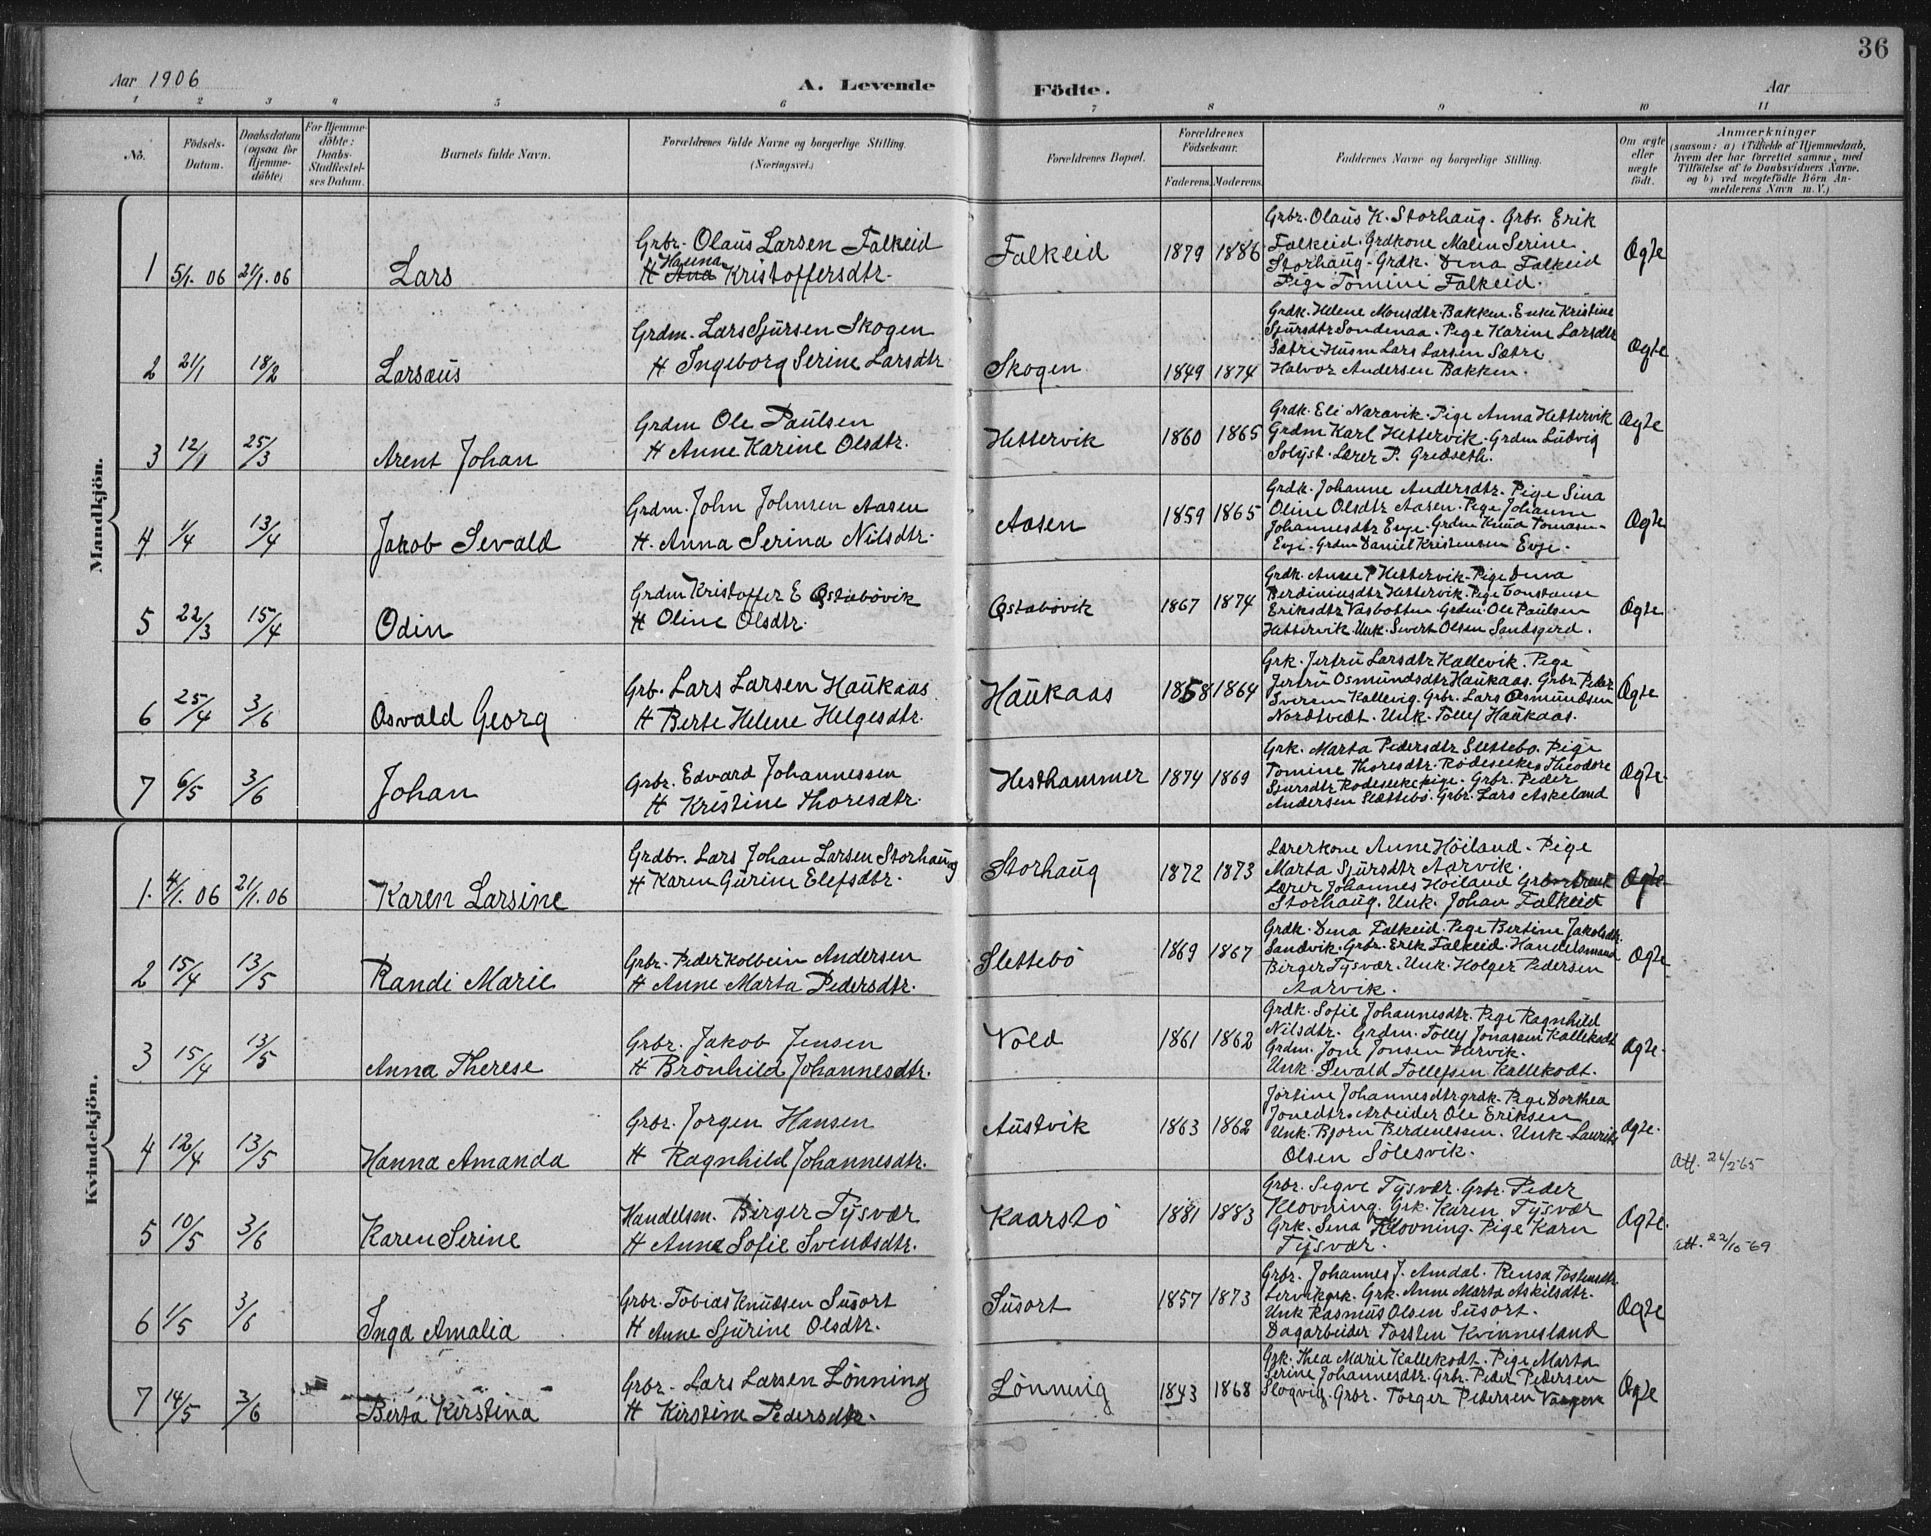 36
Aar 1906 A. Levende Födte. Aar
1 2 3 4 5 6 7 8 9 10 11
No.
Födsels-Datum.
Daabsdatum (ogsaa for Hjemme-döbte)
For Hjemme-döbte: Daabs-Stadfæstel-ses Datum.
Barnets fulde Navn.
Forældrenes fulde Navne og borgerlige Stilling.
(Næringsvei.)
Forældrenes Bopæl.
Forældrenes Födselsaar.
Faderens. Moderens.
Faddernes Navne og borgerlige Stilling.
Om ægte eller uægte födt.
Anmærkninger
(saasom: a) i Tilfælde af Hjemmedaab,
hvem der har forrettet samme, med
Tilföielse af to Daabsvidners Navne.
og b) ved uægtefödte Börn An-
melderens Navn m. V.)
Mandkjön.
1 5/1. 06 21/1. 06 Lars
Grbr. Olaus Larsen Falkeid
Hanna
H Ana Kristoffersdtr.
Falkeid 1879 1886
Grbr. Olaus K. Storhaug. Grbr. Erik
Falkeid. Grdkone Malen Serine
Storhaug. Grdk. Dina Falkeid
Pige Tomine Falkeid.
Ægte
2 21/1 18/2 Larsæus
Grdm. Lars Sjursen Skogen
H Ingeborg Serine Larsdtr
Skogen 1849 1874
Grdk. Helene Monsdtr. Bakken. Enke Kristine
Sjursdtr Sondenaa. Pige Karine Larsdtr
Sætre. Husm Lars Larsen Sætre
Halvor Andersen Bakken.
Ægte
3 12/1 25/3 Arent Johan
Grdm Ole Paulsen
H Anne Karine Olsdtr.
Hettervik 1860 1865
Grdk. Eli Naravik. Pige Anna Hettervik
Grdm Karl Hettervik. Grdm Ludvig
Solyst. Lærer P. Grødseth.
Ægte
4 1/4 13/4 Jakob Sevald
Grdm. John Johnsen Aasen
H. Anna Serina Nilsdtr.
Aasen 1859 1865
Grdk. Johanne Andersdtr. Pige Sina
Oline Olsdtr Aasen. Pige Johanne
Johannesdtr Evje. Grdm Knud Tomasen
Evje. Grdm Daniel Kristensen Evje.
Ægte
5 22/3 15/4 Odin
Grdm Kristoffer E Østabövik
H Oline Olsdtr.
Østabövik 1867 1874
Grdk. Anne P Hettervik. Pige Dina
Berdiniusdtr Hettervik. Pige Konstanse
Eriksdtr Vasbotten. Grdm Ole Paulsen
Hettervik. Unk. Sivert Olsen Sandsgerd.
Ægte
6 25/4 3/6 Osvald Georg
Grb. Lars Larsen Haukaas
H Berte Helene Helgesdtr.
Haukaas 1858 1864
Grk. Jertru Larsdtr Kallevik. Pige
Jertru Osmundsdtr Haukaas. Grbr. Peder
Iversen Kallevig. Grbr. Lars Osmundsen
Nordtvedt. Unk. Tolly Haukaas.
Ægte
7 6/5 3/6 Johan
Grbr. Edvard Johannessen
H Kristine Thoresdtr.
Hesthammer 1874 1869
Grk. Marta Pedersdtr Slettebo. Pige
Tomine Thoresdtr. Rødeseike. Theodore
Sjursdtr Rodeseike pige. Grbr. Peder
Andersen Slættebö. Grbr. Lars Askeland
Ægte
Kvindekjön.
1. 4/1. 06 21/1. 06 Karen Larsine
Grdbr. Lars Johan Larsen Storhaug
H Karen Gurine Elefsdtr.
Storhaug 1872 1873
Lærerkone Anne Höiland. Pige
Marta Sjursdtr Aarvik.
Lærer Johannes Höiland Grbr.
Storhaug. Unk. Johan Falkeid
Ægte
2 15/4 13/5 Randi Marie
Grbr. Peder Kolbein Andersen
H Anne Marta Pedersdtr.
Slettebö 1869 1867
Grdk. Dina Falkeid. Pige Bertine Jakobsdtr.
Sandvik. Grbr. Erik Falkeid. Handelsmand
Birger Tysvær. Unk. Holger Pedersen
Aarvik.
Ægte
3 15/4 13/5 Anna Therese
Grbr. Jakob Jensen
H Brönhild Johannesdtr.
Vold 1861 1862
Grdk. Sofie Johannesdtr. Pige Ragnhild
Nilsdtr. Grdm. Tolly Jonassen Kallekodt
Grdm. Jone Jonsen Hervik.
Unk. Sevald Tollefsen Kallekodt.
Ægte.
4 12/4 13/5 Hanna Amanda
Grbr. Jorgen Hansen
H Ragnhild Johannesdtr.
Austvik 1863 1862
Jortine Johannesdtr grdk. Pige Dorthea
Jonedtr. Arbeider Ole Eriksen
Unk. Bjorn Berdenessen. Unk Laurits
Olsen Solesvik.
Ægte.
Att. 26/2 65
5 10/5 3/6 Karen Serine
Handelsm. Birger Tysvær
H Anne Sofie Svendsdtr.
Kaarstö 1881 1883
Grbr. Segve Tysvær. Grbr. Peder
Klovning. Grk. Karen Tysvær
Grk. Sina Klovning. Pige Karn
Tysvær.
Ægte.
Att. 22/10-69
6 1/5 3/6 Inga Amalia
Grbr. Tobias Knudsen Susort
H Anne Sjurine Olsdtr.
Susort 1857 1873
Grbr. Johannes J. Amdal. Rensa Tostensdtr.
Lervik grk. Grk. Anne Marta Askilsdtr.
Unk Rasmus Olsen Susort.
Dagarbeider Torsten Kvinnesland
Ægte
7 14/5 3/6 Berta Kirstina
Grbr. Lars Larsen Lönning
H Kirstine Pedersdtr.
Lönning 1843 1868
Grk. Thea Marie Kallekodt. Pige Marta
Serine Johannesdtr. Grbr. Peder Pedersen
Slogvig. Grbr. Torger Pedersen
Ægte